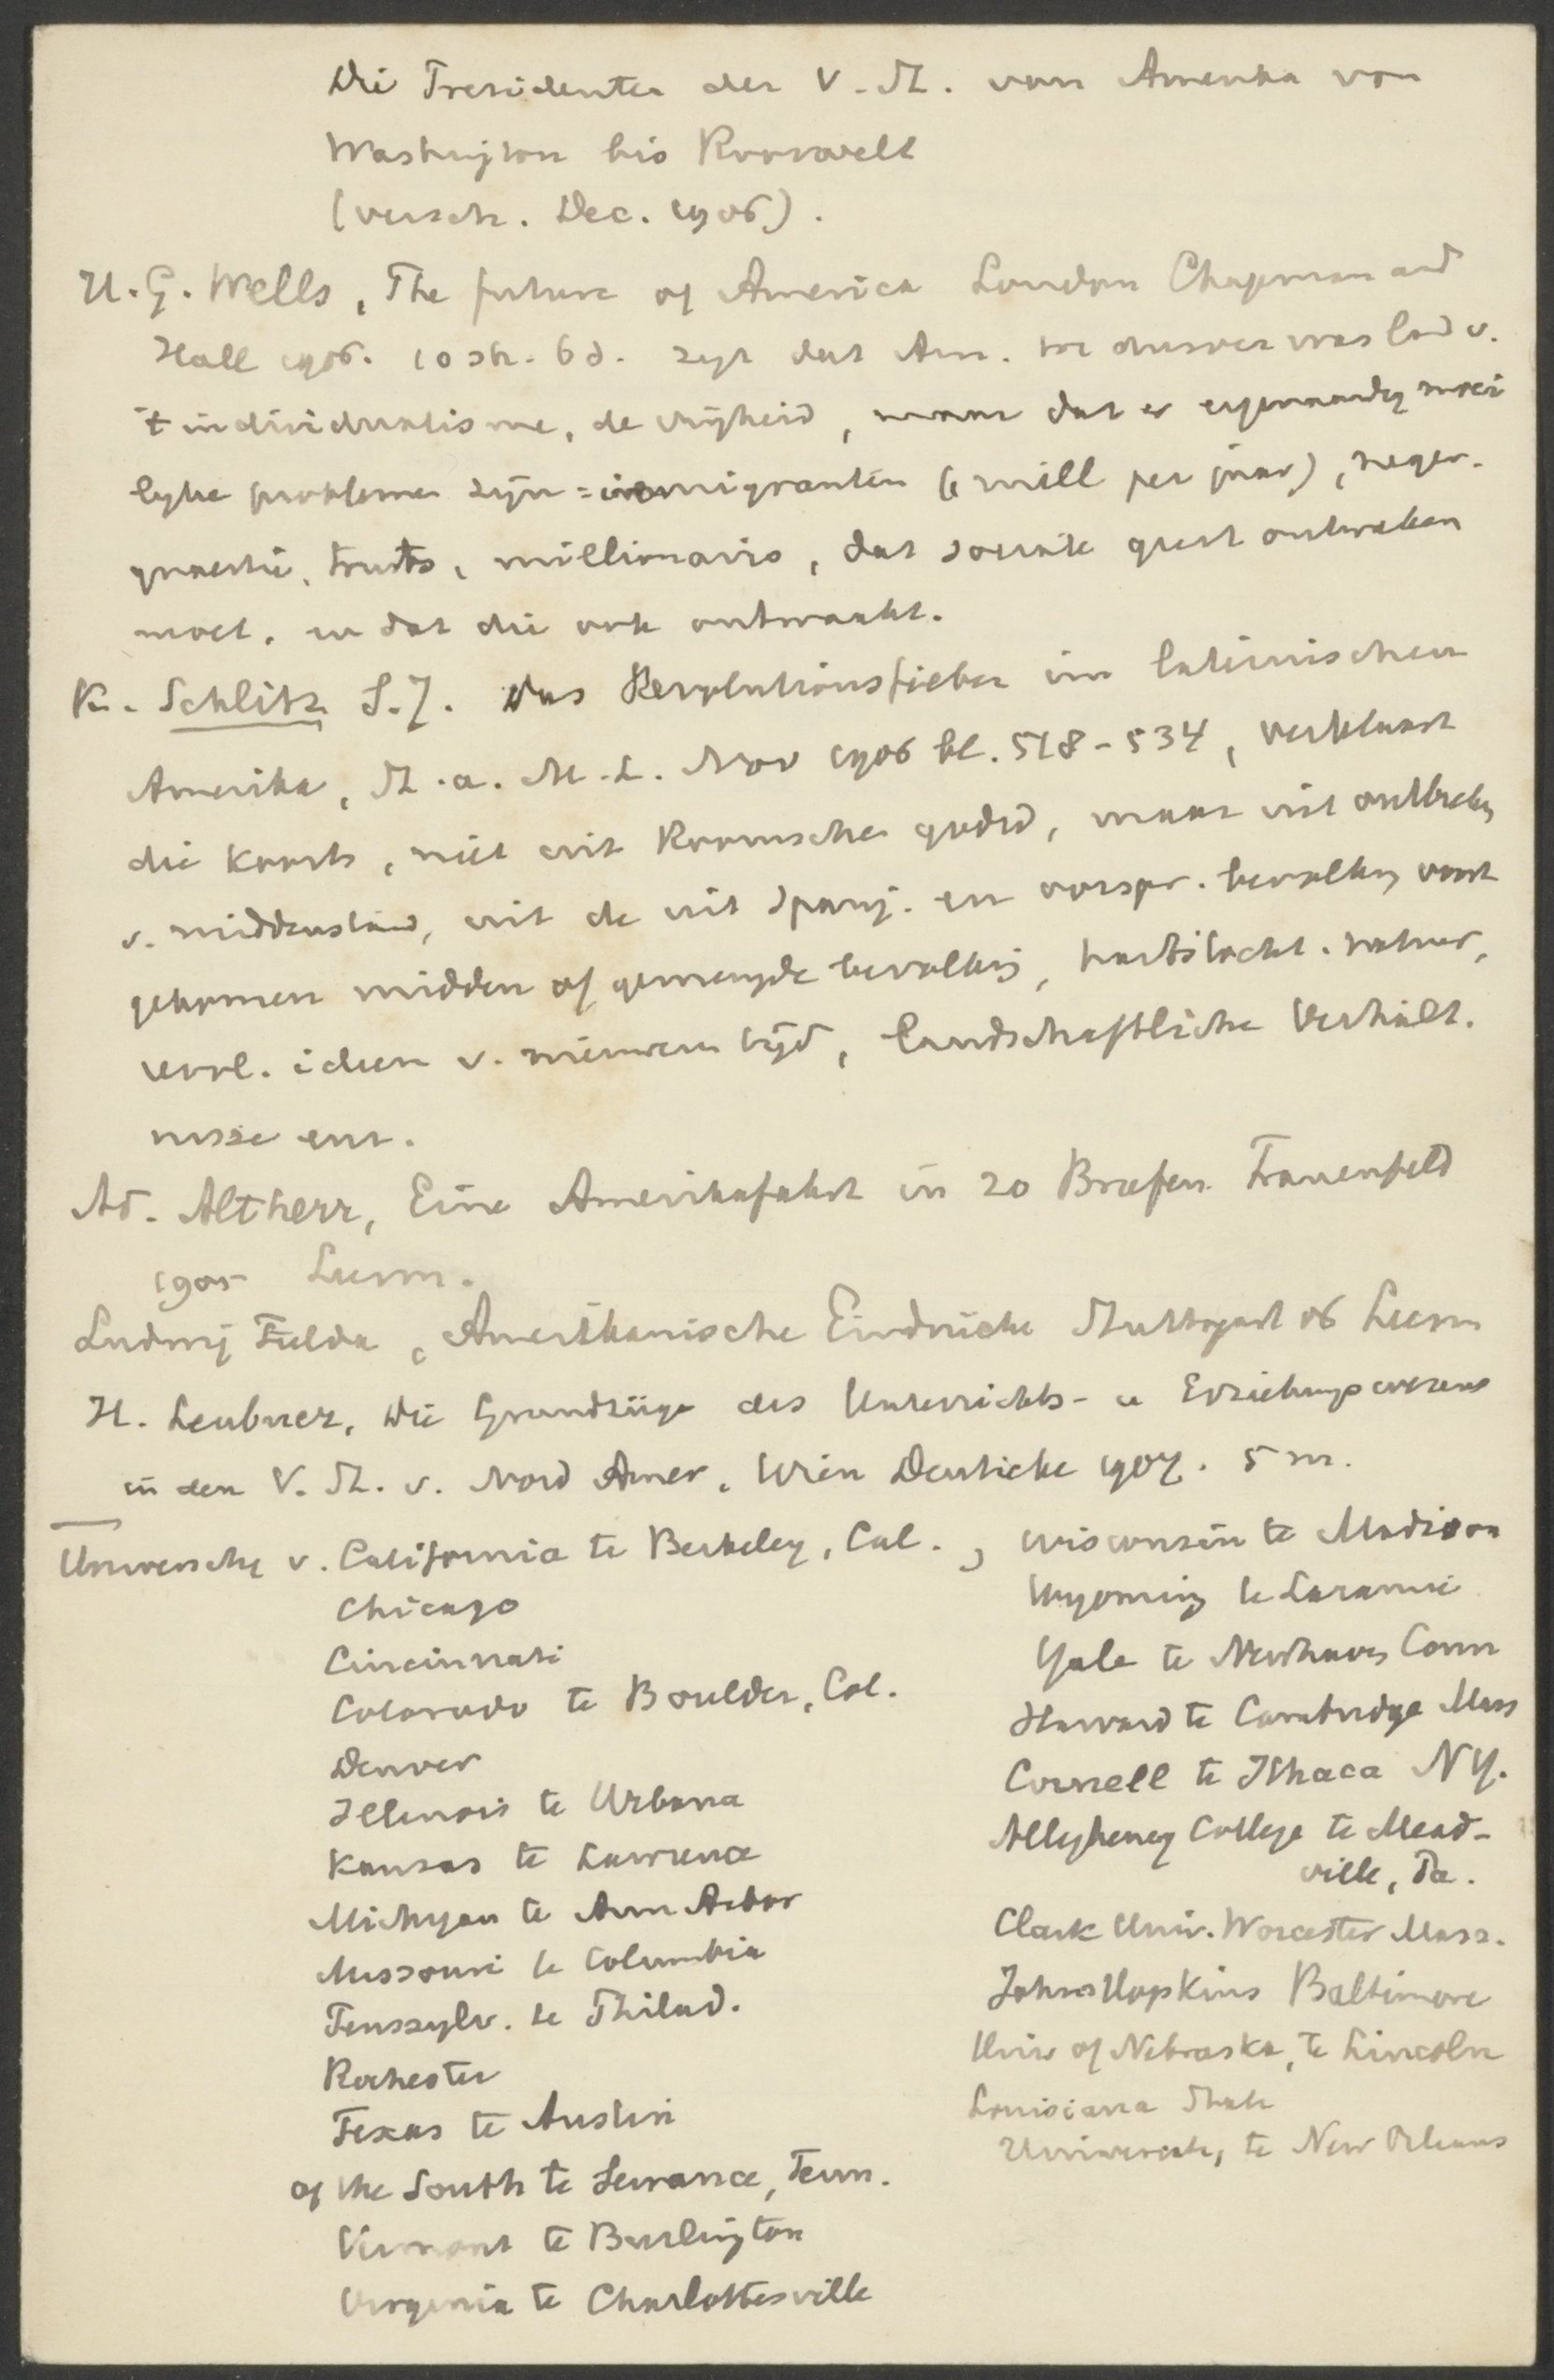 Die Presidenten der V. St. van Amerika von
Washington bis Roosevelt
(versch. Dec. 1906).
H. G. Wells, The future of America London Chapman and
Hall 1906. 10 sh. 6 d. zegt dat Am. tot dusver was land v.
't individualisme, de vrijheid, maar dat er eigenaardig moei
lijke problemen zijn = immigranten (1 mill per jaar), neger-
quaestie, trusts, millionairs, dat sociale geest ontwaken
moet, en dat die ook ontwaakt.
K. Schlitz S.J. Das Revolutionsfieber im lateinischen
Amerika, St. a. M. L. Nov 1906 bl. 518-534, verklaart
die koorts, niet uit Roomsche godsd, maar uit ontbreken
v. middenstand, uit de uit Spanj. en oorspr. bevolking voort
gekomen midden of gemengde bevolking, hartstocht. natuur,
verl. ideen v. nieuweren tijd, landschaftliche Verhält.
nisse enz.
Ad. Altherr, Eine Amerikafahrt in 20 Briefen Frauenfeld
1905 Leesm.
Ludwig Fulda, Amerikanische Eindrücke Stuttgart 06 Leesm
H. Leubner, Die Grundzüge des Unterrichts- u Erziehungswesens
in den V. St. v. Nord Amer, Wien Deuticke 1907. 5 m.
Universchy v. California te Berkeley, Cal.,
Chicago
Cincinnati
Colorado te Boulder, Col.
Denver
Illinois te Urbana
Kansas te Lawrence
Michigan te Ann Arbor
Missouri te Columbia
Pensylv. te Philad.
Rochester
Texas te Austin
of the South te Sewanee, Tenn.
Vermont te Burlington
Virginia te Charlottesville
Wisconsin te Madison
Wyoming te Laramie
Yale te Newhaven Conn
Harvard te Cambridge Mass
Cornell te Ithaca NY.
Allegheney College te Mead-
ville, Pa.
Clark Univ. Worcester Mass.
Johns Hopkins Baltimore
Univ of Nebraska, te Lincoln
Louisiana State
University, te New Orleans